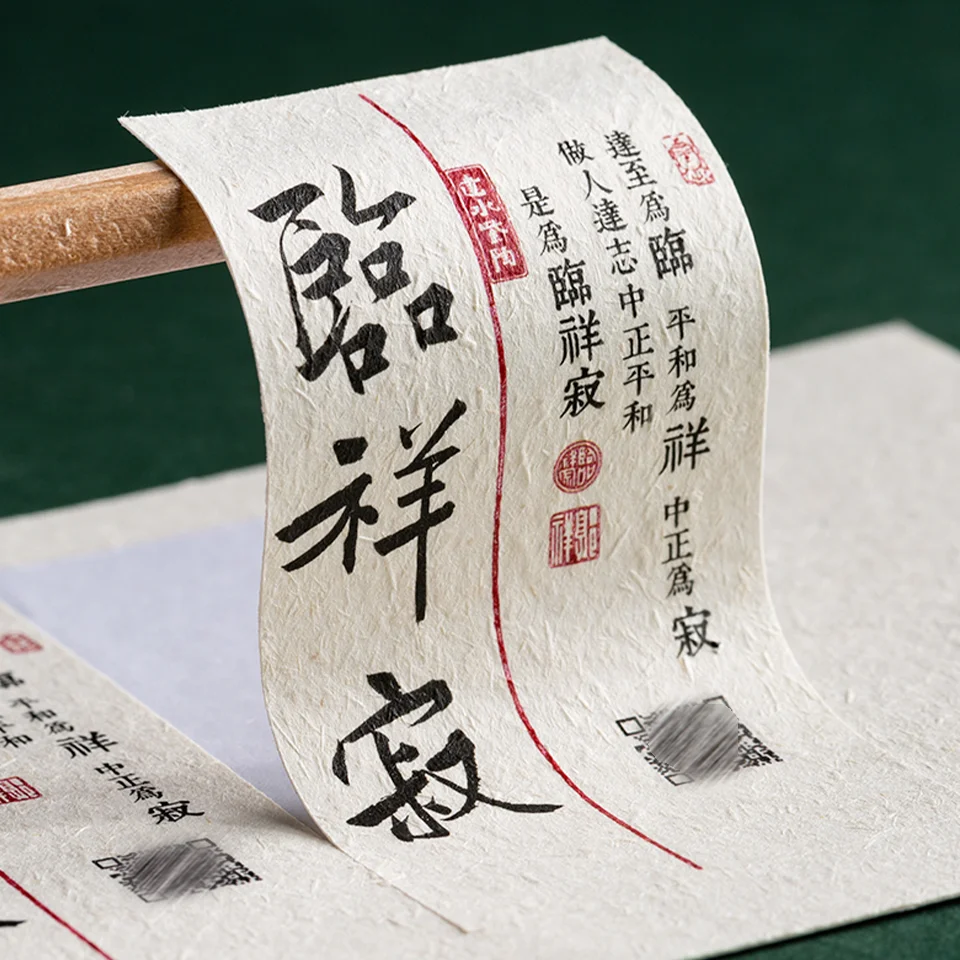 達至爲臨 平和爲祥 中正爲寂
做人達志中正平和
是爲臨祥寂
臨祥寂
平和爲祥 中正爲寂